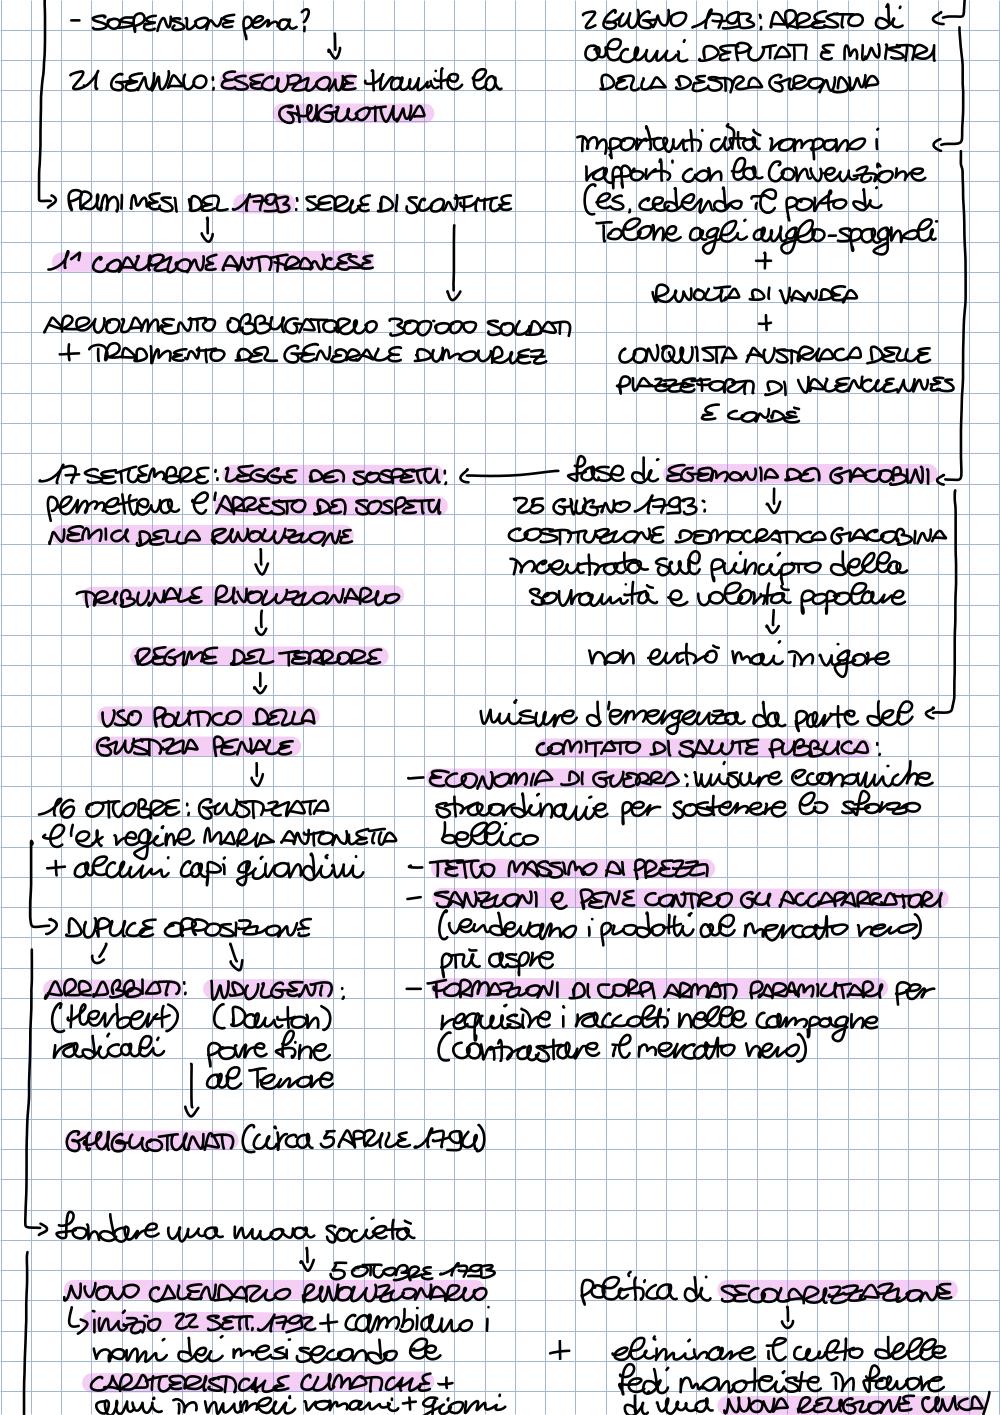 - SOSPENSIONE pena?
21 GENNAIO: ESECUZIONE tramite la
GHIGLIOTTINA
PRIMI MESI DEL 1793: SERIE DI SCONFITTE
1^ COALIZIONE ANTIFRANCESE
ARRUOLAMENTO OBBLIGATORIO 300'000 SOLDATI
+ TRADIMENTO DEL GENERALE DUMOURIEZ
2 GIUGNO 1793: ARRESTO di
alcuni DEPUTATI E MINISTRI
DELLA DESTRA GIRONDINA
importanti città rompono i
rapporti con la Convenzione
(es. cedendo il porto di
Tolone agli anglo-spagnoli
+
RIVOLTA DI VANDEA
+
CONQUISTA AUSTRIACA DELLE
PIAZZEFORTI DI VALENCIENNES
E CONDÈ
fase di EGEMONIA DEI GIACOBINI
25 GIUGNO 1793:
COSTITUZIONE DEMOCRATICA GIACOBINA
incentrata sul principio della
sovranità e volontà popolare
non entrò mai in vigore
17 SETTEMBRE: LEGGE DEI SOSPETTI:
permetteva l'ARRESTO DEI SOSPETTI
NEMICI DELLA RIVOLUZIONE
TRIBUNALE RIVOLUZIONARIO
REGIME DEL TERRORE
USO POLITICO DELLA
GIUSTIZIA PENALE
16 OTTOBRE: GIUSTIZIATA
l'ex regine MARIA ANTONIETTA
+ alcuni capi girondini
DUPLICE OPPOSIZIONE
ARRABBIATI:
(Herbert)
radicali
INDULGENTI:
(Danton)
porre fine
al Terrore
GHIGLIOTTINATI (circa 5 APRILE 1794)
misure d'emergenza da parte del
COMITATO DI SALUTE PUBBLICA:
- ECONOMIA DI GUERRA: misure economiche
straordinarie per sostenere lo sforzo
bellico
- TETTO MASSIMO AI PREZZI
- SANZIONI e PENE CONTRO GLI ACCAPARRATORI
(vendevano i prodotti al mercato nero)
più aspre
- FORMAZIONI DI CORPI ARMATI PARAMILITARI per
requisire i raccolti nelle campagne
(contrastare il mercato nero)
fondare una nuova società
5 OTTOBRE 1793
NUOVO CALENDARIO RIVOLUZIONARIO
inizio 22 SETT. 1792 + cambiano i
nomi dei mesi secondo le
CARATTERISTICHE CLIMATICHE +
anni in numeri romani + giorni
+
politica di SECOLARIZZAZIONE
eliminare il culto delle
fedi monoteiste in favore
di una NUOVA RELIGIONE CIVICA/